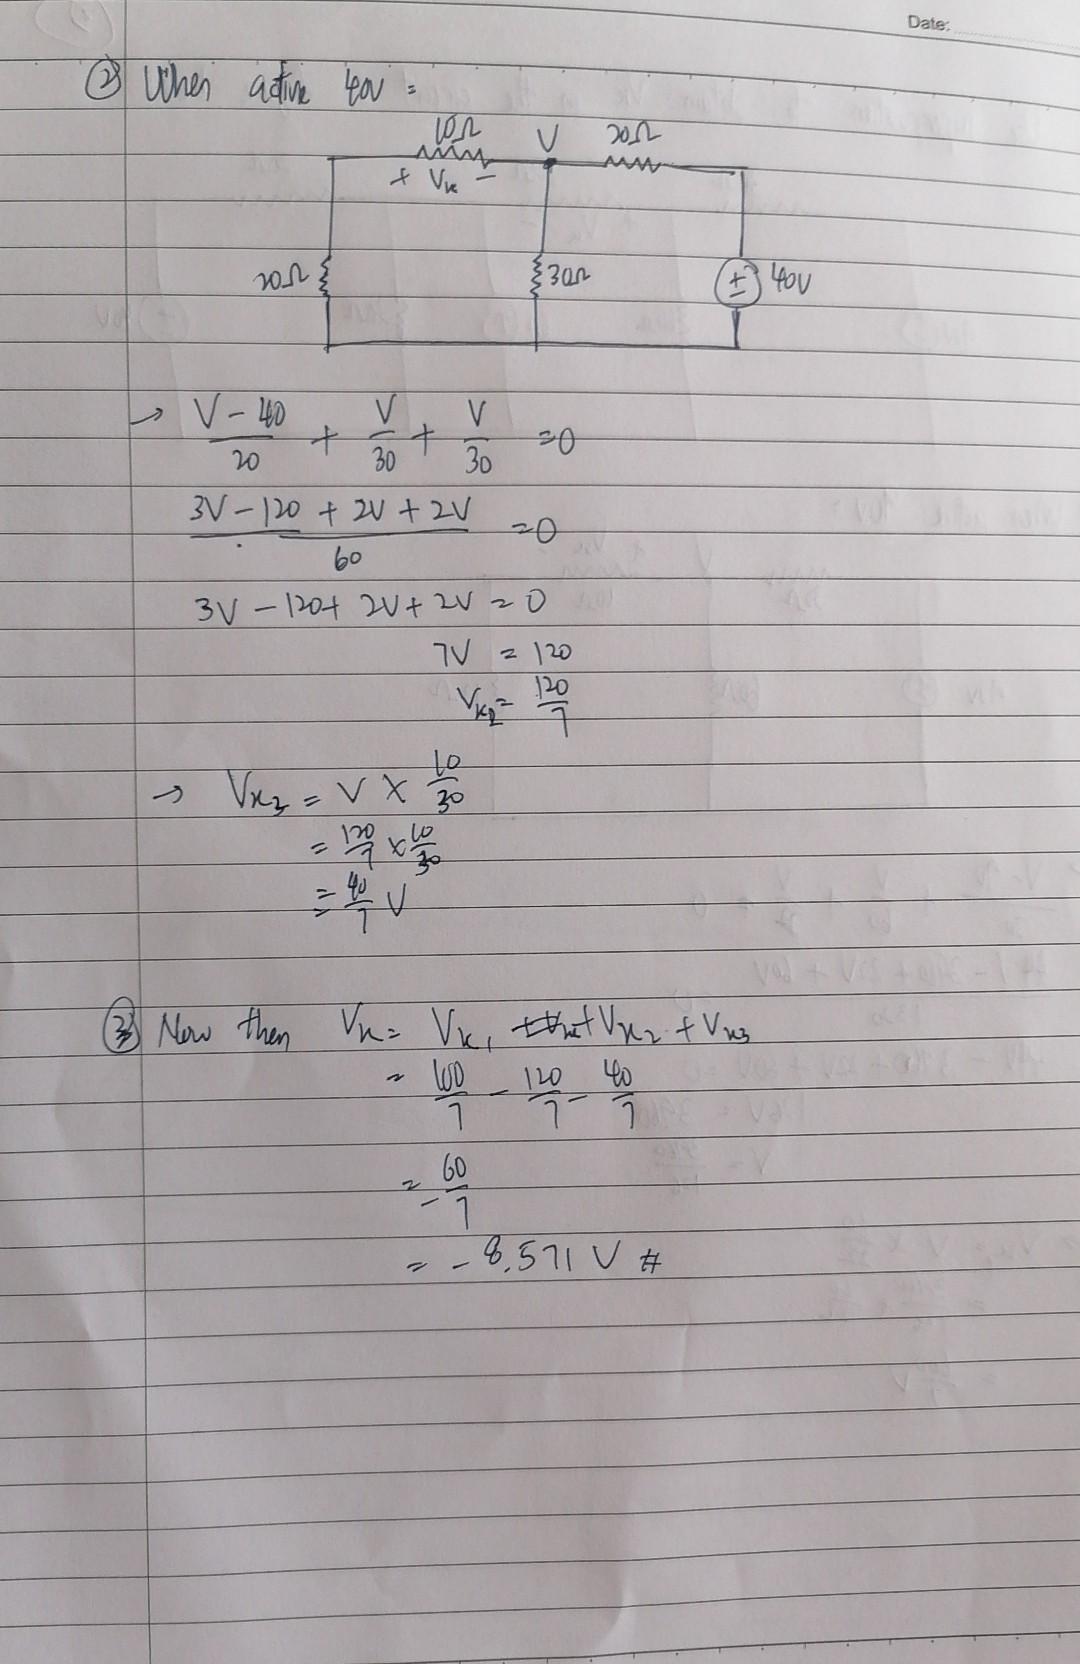 Date:
② When active 40V =
10Ω V 20Ω
+ Vx -
20Ω 30Ω ± 40V
→ V-40/20 + V/30 + V/30 =0
3V-120+2V+2V/60 =0
3V-120+2V+2V=0
7V = 120
Vx2= 120/7
→ Vx3 = V × 10/30
= 120/7 × 10/30
= 40/7 V
③ Now then Vx= Vx1 +Vx2 + Vx3
= 100/7 - 120/7 - 40/7
= -60/7
= -8.571 V #